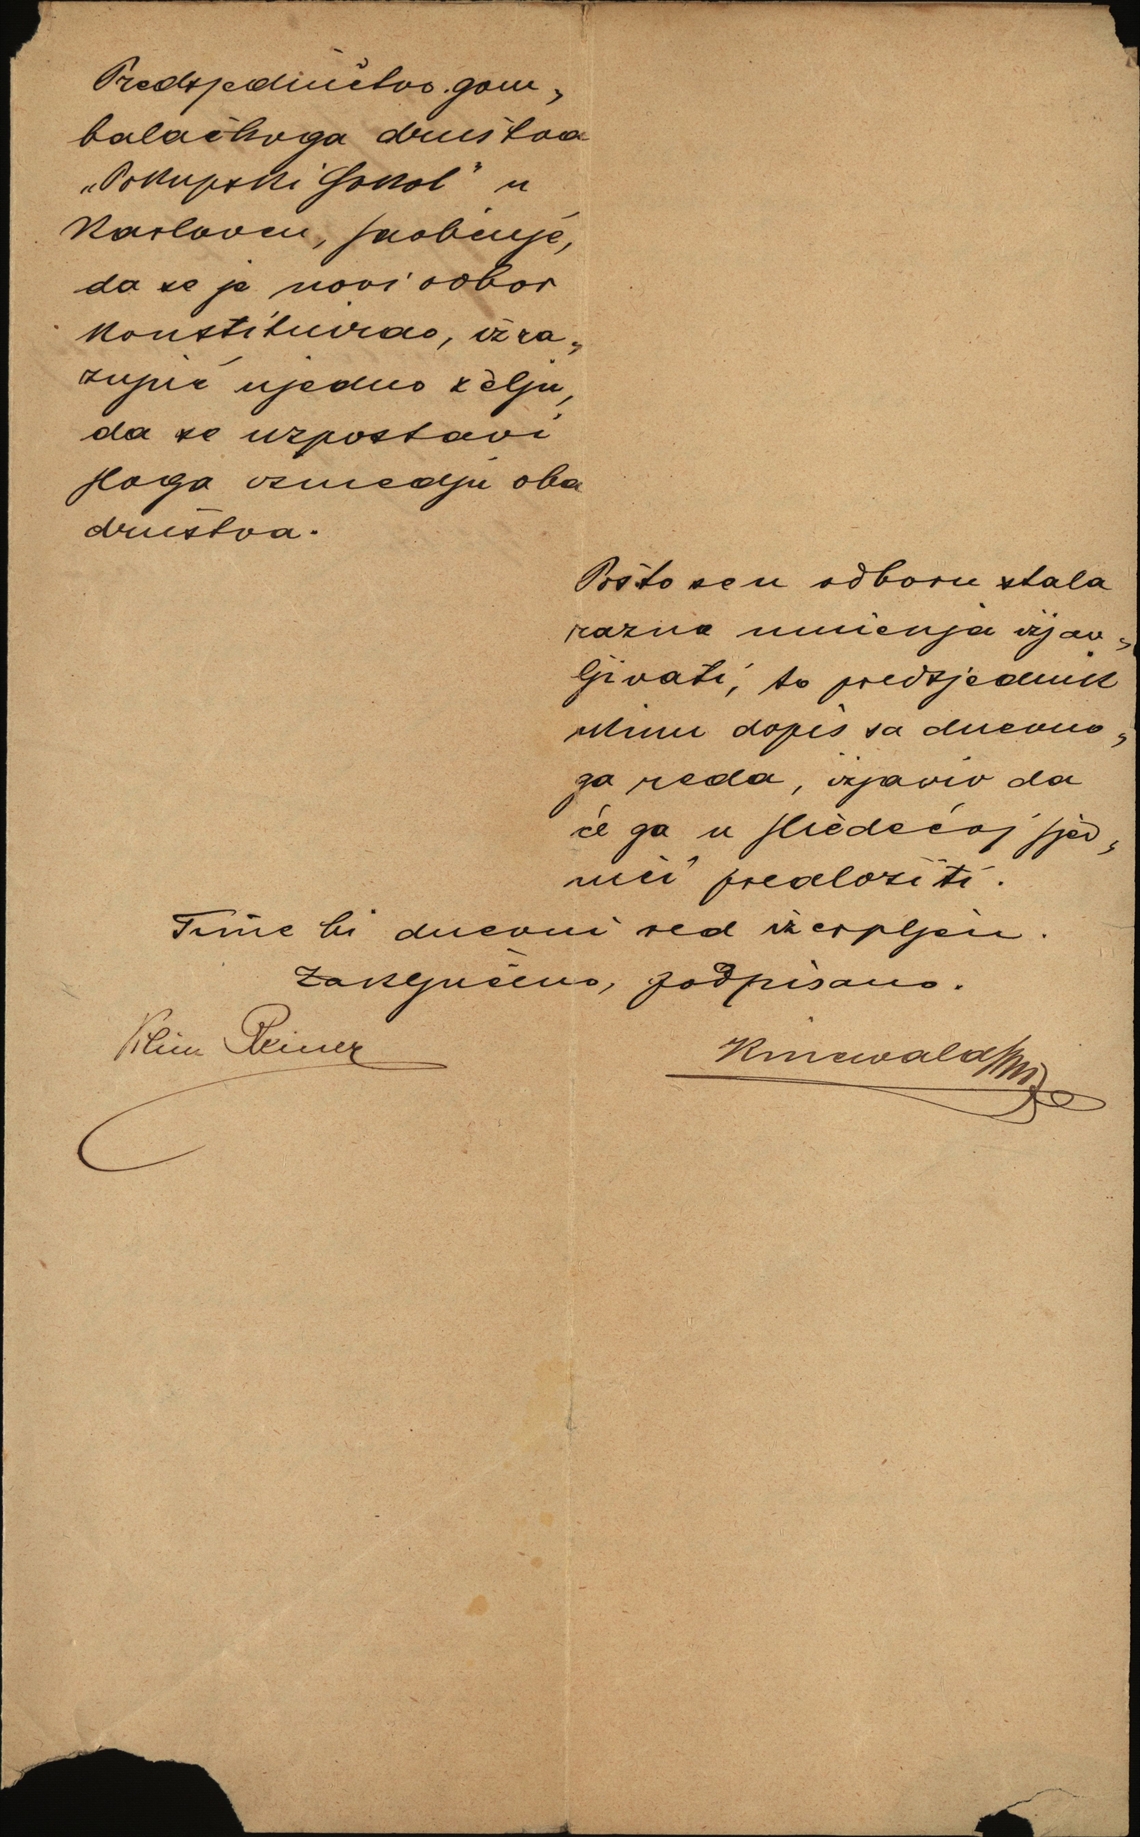 Predsjedničtvo gom„
balačkoga družtva
„Pokupski Sokol" u
Karlovcu, saobćuje,
da se je novi odbor
konstituirao, izra„
zujuć ujedno želju,
da se uzpostavi
sloga izmedju oba
družtva.
Pošto se u odboru stala
razna mnienja izjav„
ljivati, to predsjednik
skinu dopis sa dnevno„
ga reda, izjaviv da
će ga u sliedećoj sjed„
nici predložiti.
Time bi dnevni red izcrpljen.
Zaključeno, podpisano.
Vilim Reiner